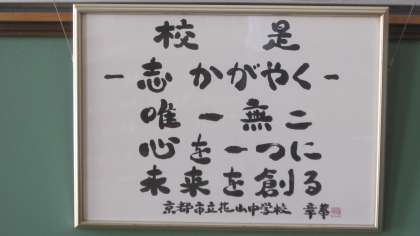 校是
-志 かがやく-
唯一無二
心を一つに
未来を創る
京都市立花山中学校 章華